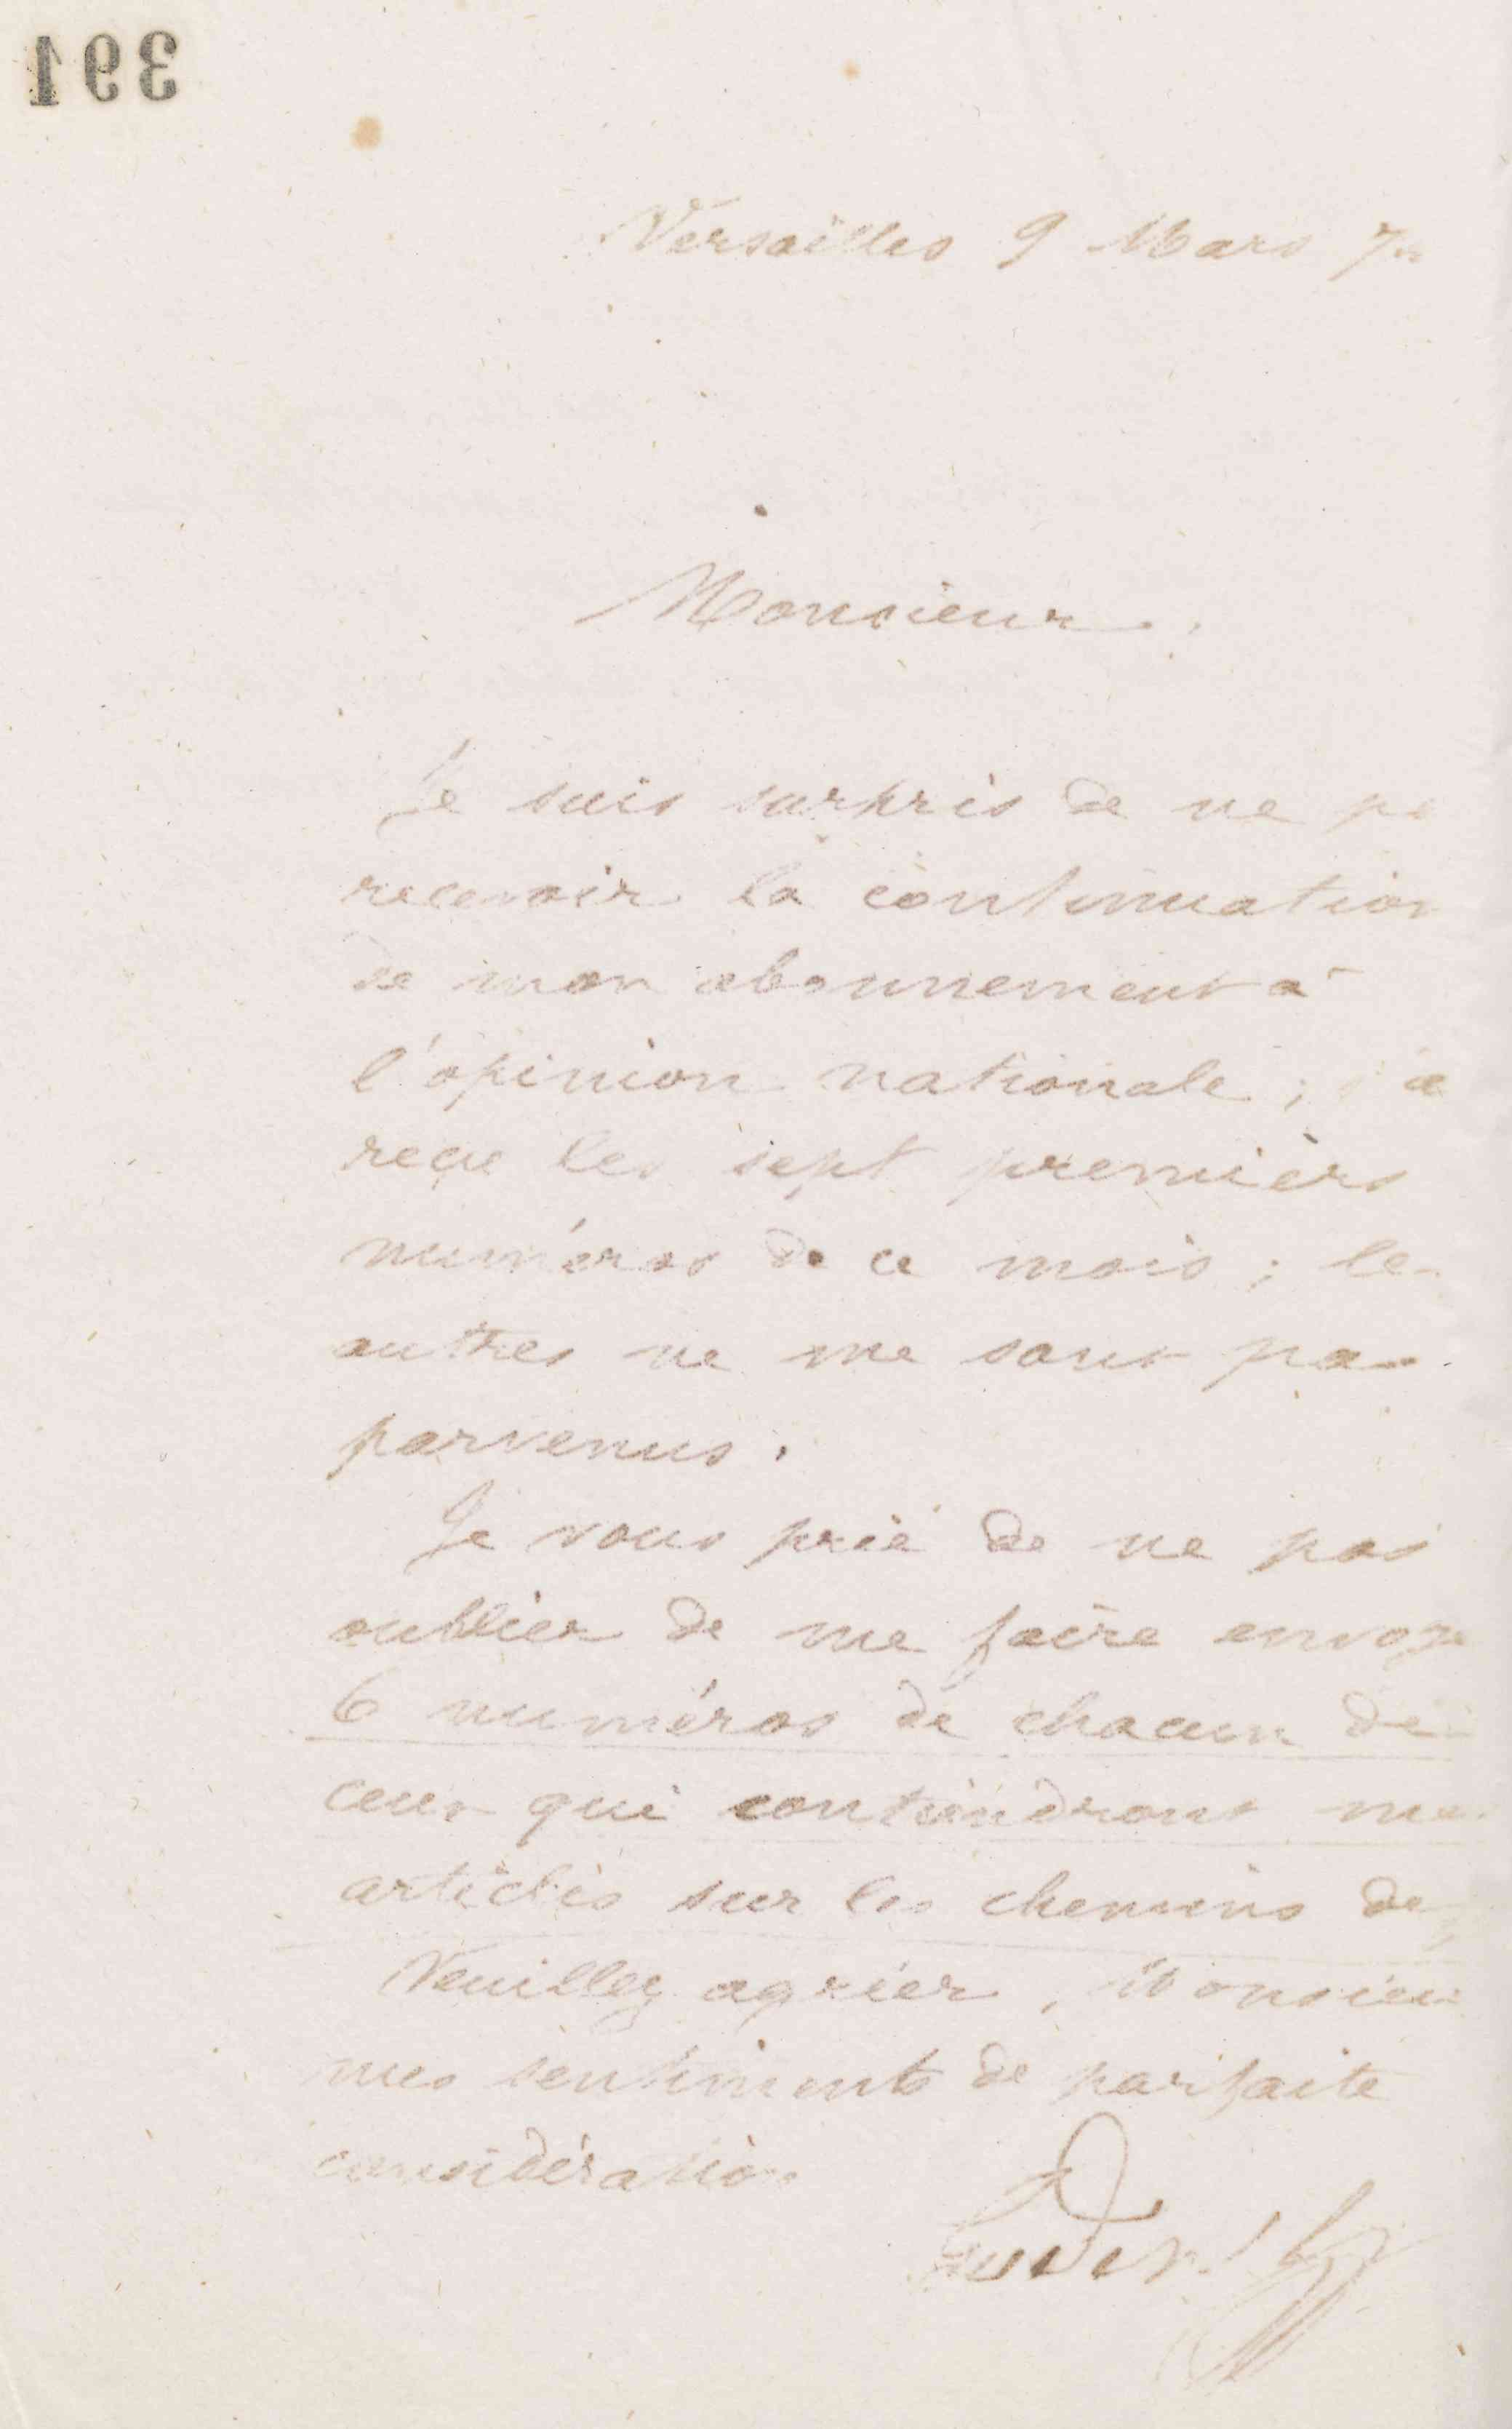 391
Versailles 9 Mars 7
Monsieur
Je suis surpris de ne
recevoir la continuation
de mon abonnement à
l'opinion nationale ;
reçu les sept premiers
numéros de ce mois ; le
autres ne me sont pa
parvenus .
Je vous prie de ne pas
oublier de me faire envoye
6 numéros de chacun de
ceux qui contiendront me
articles sur les chemins de
Veuillez agréer , Monsieu
mes sentiments de parfaite
considération